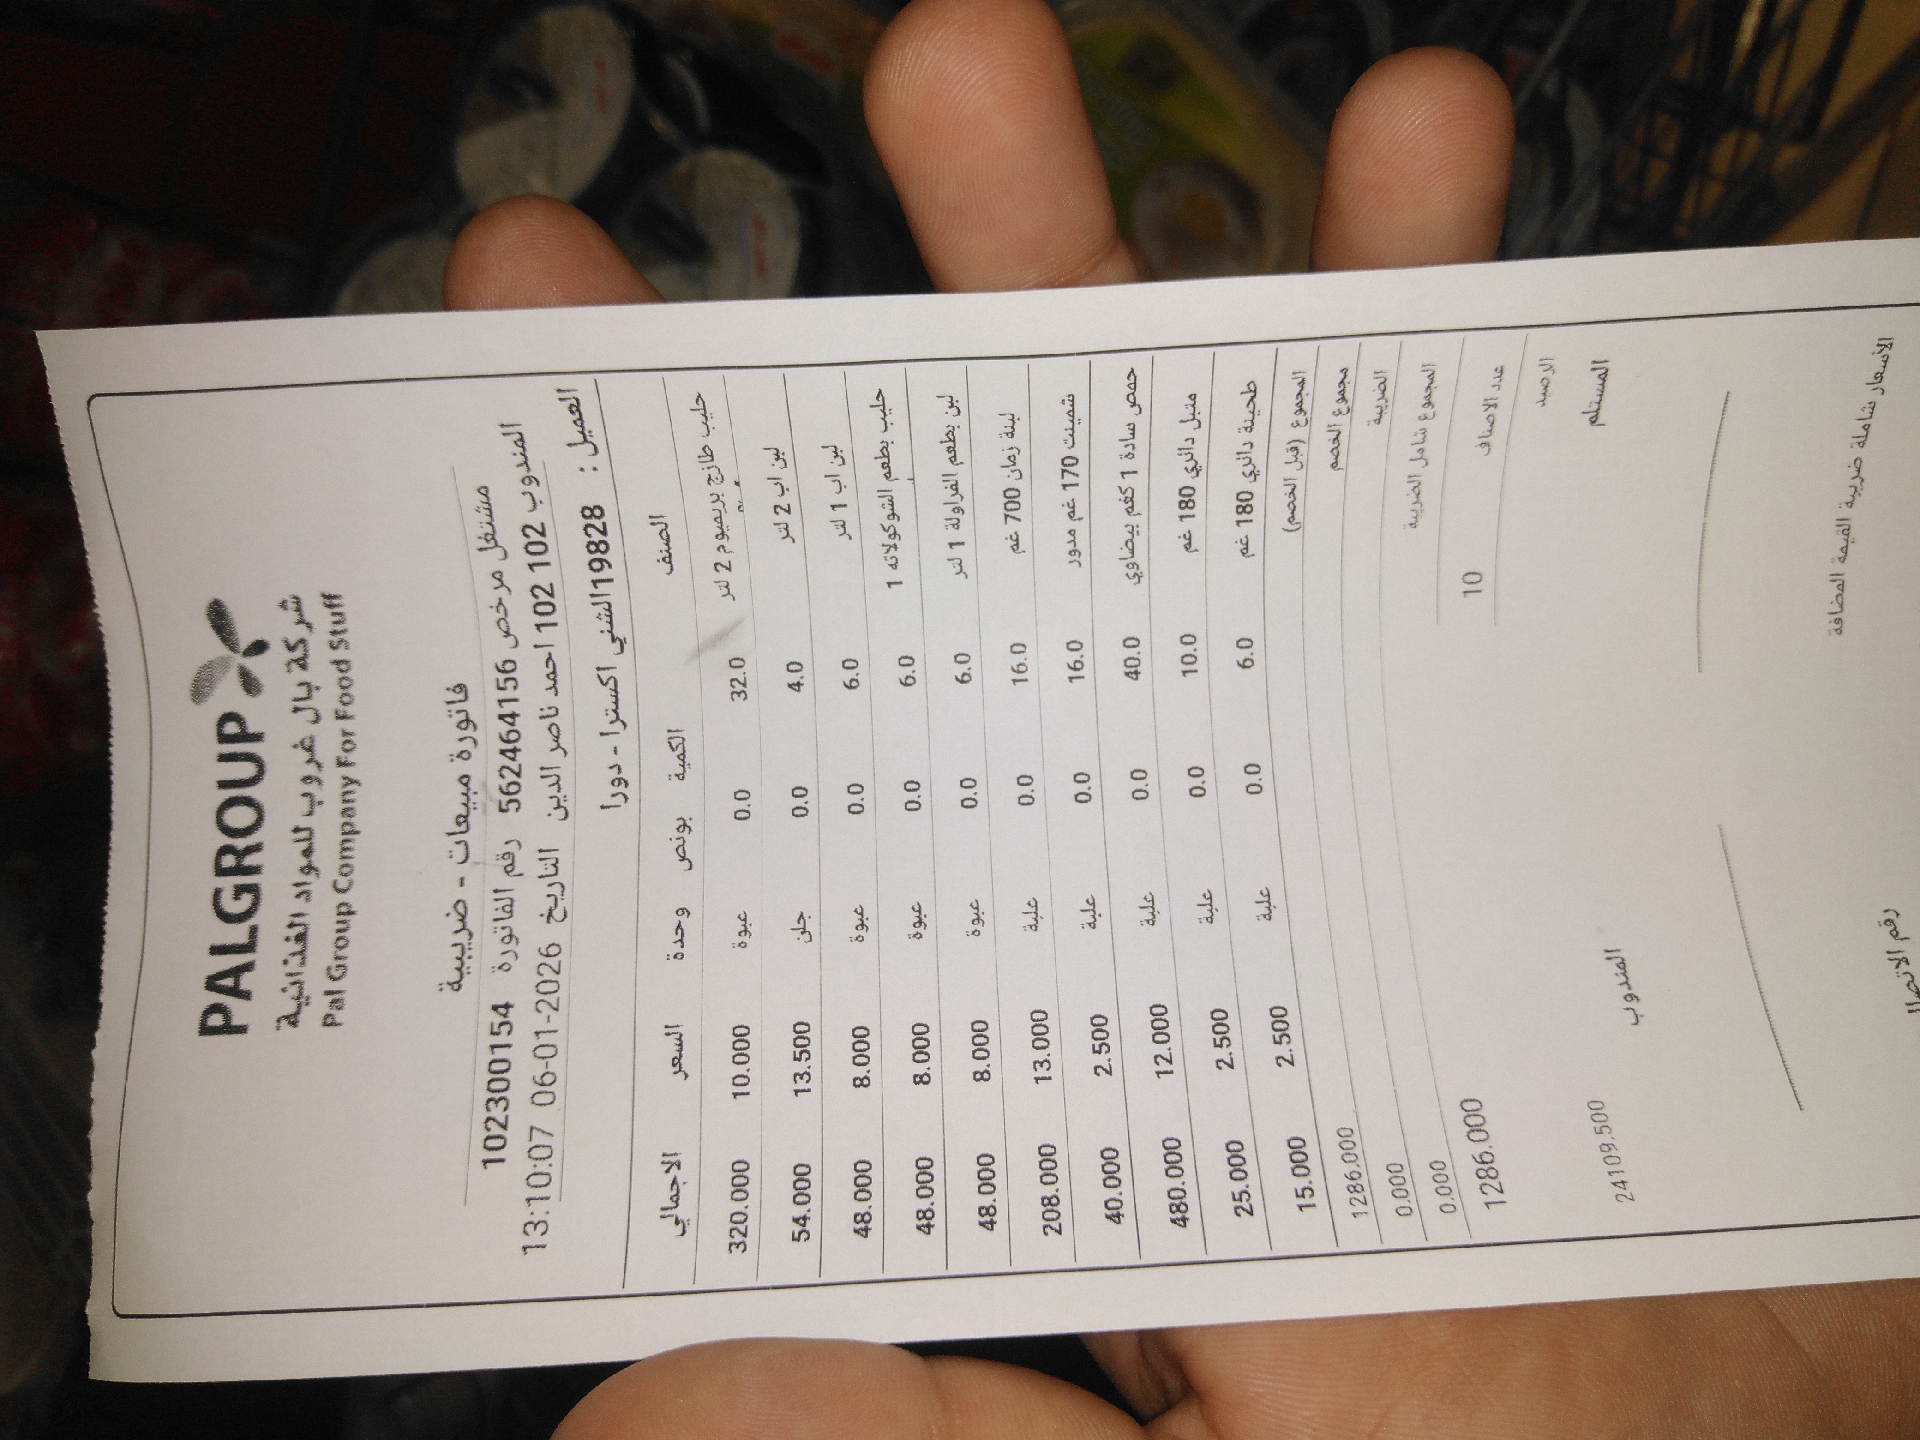 PALGROUP
شركة بال غروب للمواد الغذائية
Pal Group Company For Food Stuff
فاتورة مبيعات - ضريبية
مشتغل مرخص 562464156 رقم الفاتورة 102300154
المندوب 102 102 احمد ناصر الدين التاريخ 06-01-2026 13:10:07
العميل : 19828الشني اكسترا - دورا
الصنف الكمية بونص وحدة السعر الاجمالي
حليب طازج بريميوم 2 لتر 32.0 0.0 عبوة 10.000 320.000
لبن اب 2 لتر 4.0 0.0 جلن 13.500 54.000
لبن اب 1 لتر 6.0 0.0 عبوة 8.000 48.000
حليب بطعم الشوكولاته 1 6.0 0.0 عبوة 8.000 48.000
لبن بطعم الفراولة 1 لتر 6.0 0.0 عبوة 8.000 48.000
لبنة زمان 700 غم 16.0 0.0 علبة 13.000 208.000
شمينت 170 غم مدور 16.0 0.0 علبة 2.500 40.000
حمص سادة 1 كغم بيضاوي 40.0 0.0 علبة 12.000 480.000
متبل دائري 180 غم 10.0 0.0 علبة 2.500 25.000
طحينة دائري 180 غم 6.0 0.0 علبة 2.500 15.000
المجموع (قبل الخصم) 1286.000
مجموع الخصم 0.000
الضريبة 0.000
المجموع شامل الضريبة 1286.000
عدد الاصناف 10
الرصيد 24109.500
المستلم المندوب
الأسعار شاملة ضريبة القيمة المضافة
رقم